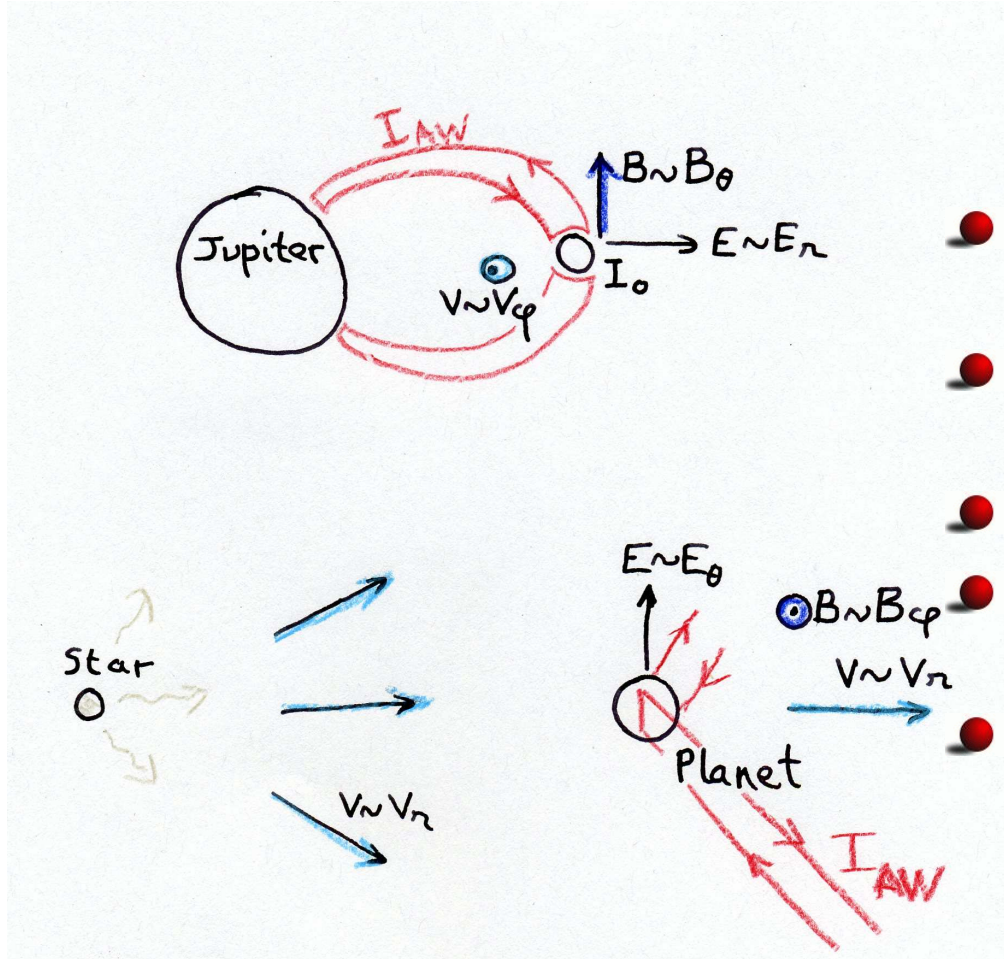 I AW
B~Bθ
Jupiter
E~Er
Io
V~Vφ
E~Eθ
B~Bφ
Star
V~Vr
Planet
V~Vr
I AW